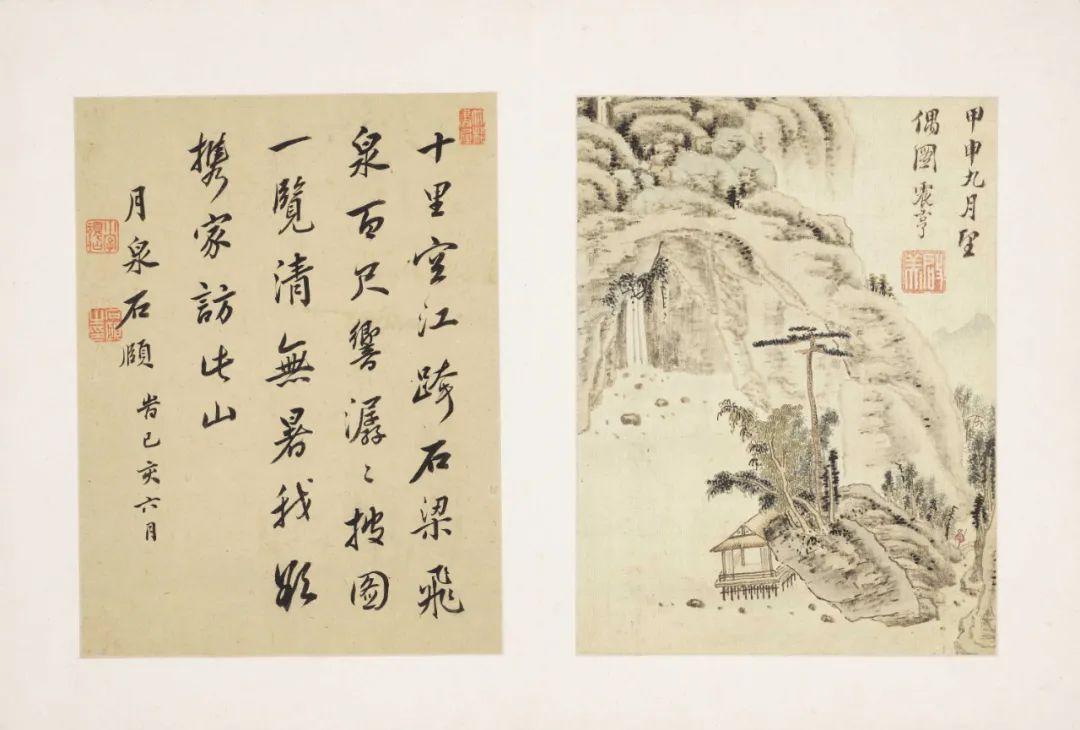 甲申九月望
偶圖震亨
十里空江跨石梁飛
泉百尺響潺〻披圖
一覽清無暑我欲
攜家訪此山
月泉石頤 旹己亥六月